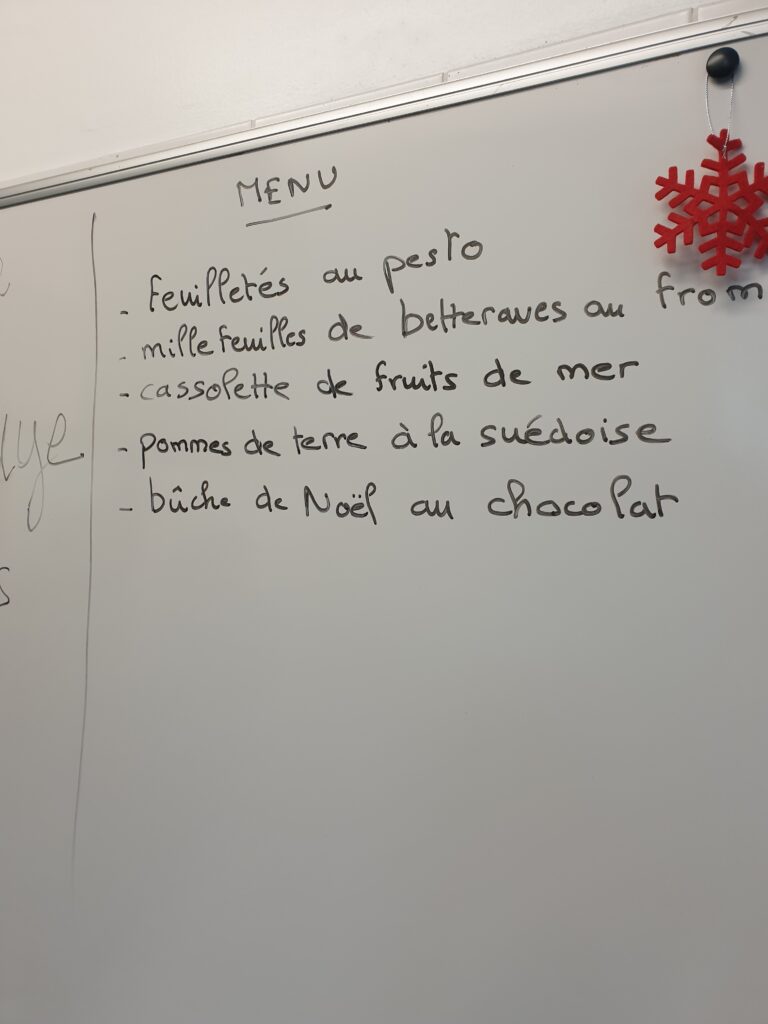 MENU
- feuilletés au pesto
- millefeuilles de betteraves au from
- cassolette de fruits de mer
- pommes de terre à la suédoise
- bûche de Noël au chocolat